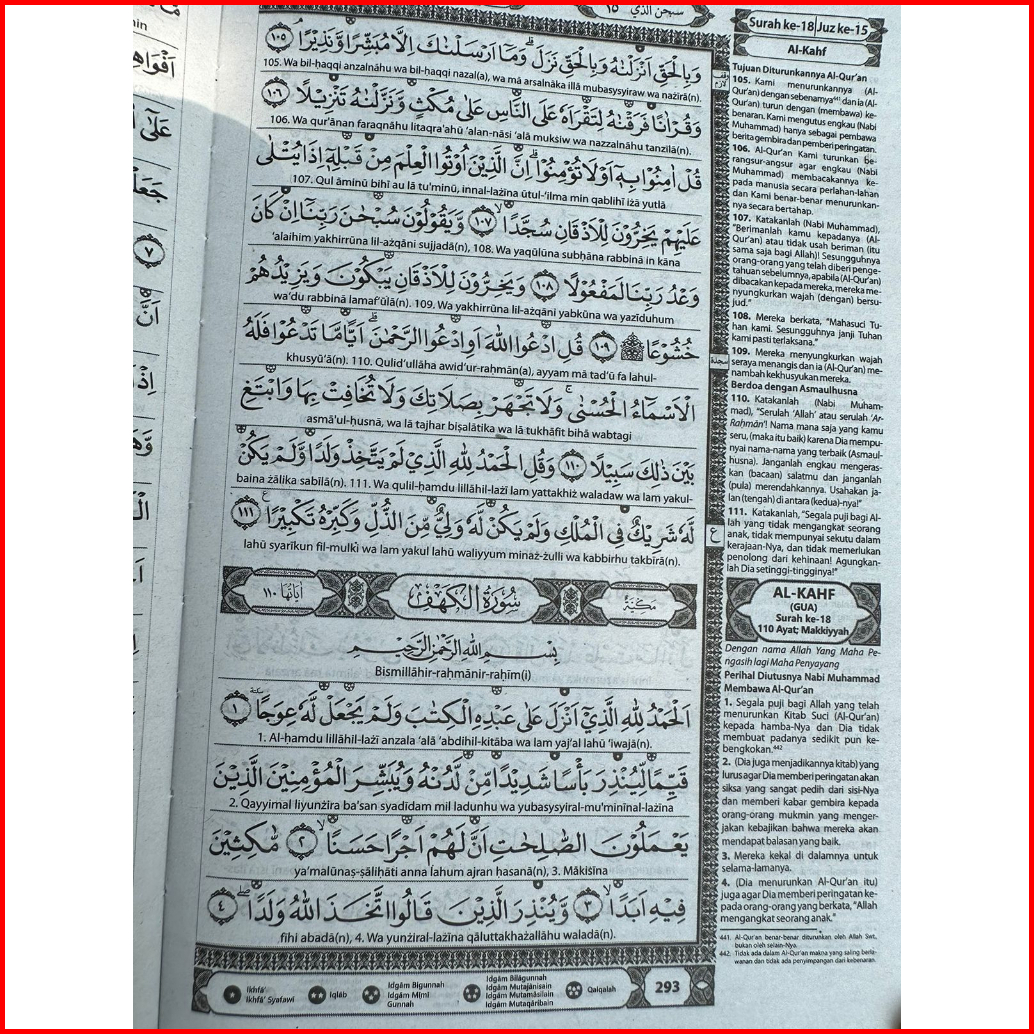 سبحن الذي ١٥
وَبِالْحَقِّ اَنْزَلْنٰهُ وَبِالْحَقِّ نَزَلَۗ وَمَآ اَرْسَلْنٰكَ اِلَّا مُبَشِّرًا وَّنَذِيْرًاۘ ١٠٥
105. Wa bil-ḥaqqi anzalnāhu wa bil-ḥaqqi nazal(a), wa mā arsalnāka illā mubasysyiraw wa nażīrā(n).
وَقُرْاٰنًا فَرَقْنٰهُ لِتَقْرَاَهٗ عَلَى النَّاسِ عَلٰى مُكْثٍ وَّنَزَّلْنٰهُ تَنْزِيْلًا ١٠٦
106. Wa qur'ānan faraqnāhu litaqra'ahū 'alan-nāsi 'alā mukṡiw wa nazzalnāhu tanzīlā(n).
قُلْ اٰمِنُوْا بِهٖٓ اَوْ لَا تُؤْمِنُوْاۗ اِنَّ الَّذِيْنَ اُوْتُوا الْعِلْمَ مِنْ قَبْلِهٖٓ اِذَا يُتْلٰى
107. Qul āminū bihī au lā tu'minū, innal-lażīna ūtul-'ilma min qablihī iżā yutlā
عَلَيْهِمْ يَخِرُّوْنَ لِلْاَذْقَانِ سُجَّدًاۙ ١٠٧ وَّيَقُوْلُوْنَ سُبْحٰنَ رَبِّنَآ اِنْ كَانَ
'alaihim yakhirrūna lil-ażqāni sujjadā(n), 108. Wa yaqūlūna subḥāna rabbinā in kāna
وَعْدُ رَبِّنَا لَمَفْعُوْلًا ١٠٨ وَيَخِرُّوْنَ لِلْاَذْقَانِ يَبْكُوْنَ وَيَزِيْدُهُمْ
wa'du rabbinā lamaf'ūlā(n). 109. Wa yakhirrūna lil-ażqāni yabkūna wa yazīduhum
خُشُوْعًا ۩ ١٠٩ قُلِ ادْعُوا اللّٰهَ اَوِ ادْعُوا الرَّحْمٰنَۗ اَيًّا مَّا تَدْعُوْا فَلَهُ
khusyū'ā(n). 110. Qulid'ullāha awid'ur-raḥmān(a), ayyam mā tad'ū fa lahul-
الْاَسْمَاۤءُ الْحُسْنٰىۚ وَلَا تَجْهَرْ بِصَلَاتِكَ وَلَا تُخَافِتْ بِهَا وَابْتَغِ
asmā'ul-ḥusnā, wa lā tajhar biṣalātika wa lā tukhāfit bihā wabtagi
بَيْنَ ذٰلِكَ سَبِيْلًا ١١٠ وَقُلِ الْحَمْدُ لِلّٰهِ الَّذِيْ لَمْ يَتَّخِذْ وَلَدًا وَّلَمْ يَكُنْ
baina żālika sabīlā(n). 111. Wa qulil-ḥamdu lillāhil-lażī lam yattakhiż waladaw wa lam yakul-
لَّهٗ شَرِيْكٌ فِى الْمُلْكِ وَلَمْ يَكُنْ لَّهٗ وَلِيٌّ مِّنَ الذُّلِّ وَكَبِّرْهُ تَكْبِيْرًا ١١١
lahū syarīkun fil-mulki wa lam yakul lahū waliyyum minaż-żulli wa kabbirhu takbīrā(n).
مَكِّيَّةٌ سُوْرَةُ الْكَهْفِ اٰيَاتُهَا ١١٠
بِسْمِ اللّٰهِ الرَّحْمٰنِ الرَّحِيْمِ
Bismillāhir-raḥmānir-raḥīm(i)
اَلْحَمْدُ لِلّٰهِ الَّذِيْٓ اَنْزَلَ عَلٰى عَبْدِهِ الْكِتٰبَ وَلَمْ يَجْعَلْ لَّهٗ عِوَجًا ١
1. Al-ḥamdu lillāhil-lażī anzala 'alā 'abdihil-kitāba wa lam yaj'al lahū 'iwajā(n).
قَيِّمًا لِّيُنْذِرَ بَأْسًا شَدِيْدًا مِّنْ لَّدُنْهُ وَيُبَشِّرَ الْمُؤْمِنِيْنَ الَّذِيْنَ
2. Qayyimal liyunżira ba'san syadīdam mil ladunhu wa yubasysyiral-mu'minīnal-lażīna
يَعْمَلُوْنَ الصّٰلِحٰتِ اَنَّ لَهُمْ اَجْرًا حَسَنًاۙ ٢ مَّاكِثِيْنَ
ya'malūnaṣ-ṣāliḥāti anna lahum ajran ḥasanā(n), 3. Mākiṡīna
فِيْهِ اَبَدًاۙ ٣ وَّيُنْذِرَ الَّذِيْنَ قَالُوا اتَّخَذَ اللّٰهُ وَلَدًاۖ ٤
fīhi abadā(n), 4. Wa yunżiral-lażīna qāluttakhażallāhu waladā(n).
Ikhfā'
Ikhfā' Syafawi
Iqlāb
Idgām Bigunnah
Idgām Mīmī
Gunnah
Idgām Bilāgunnah
Idgām Mutajānisain
Idgām Mutamāṡilain
Idgām Mutaqāribain
Qalqalah
293
Surah ke-18 Juz ke-15
Al-Kahf
Tujuan Diturunkannya Al-Qur'an
105. Kami menurunkannya (Al-
Qur'an) dengan sebenarnya⁴⁴¹ dan ia (Al-
Qur'an) turun dengan (membawa) ke-
benaran. Kami mengutus engkau (Nabi
Muhammad) hanya sebagai pembawa
berita gembira dan pemberi peringatan.
106. Al-Qur'an Kami turunkan be-
rangsur-angsur agar engkau (Nabi
Muhammad) membacakannya ke-
pada manusia secara perlahan-lahan
dan Kami benar-benar menurunkan-
nya secara bertahap.
107. Katakanlah (Nabi Muhammad),
"Berimanlah kamu kepadanya (Al-
Qur'an) atau tidak usah beriman (itu
sama saja bagi Allah)! Sesungguhnya
orang-orang yang telah diberi penge-
tahuan sebelumnya, apabila (Al-Qur'an)
dibacakan kepada mereka, mereka me-
nyungkurkan wajah (dengan) bersu-
jud."
108. Mereka berkata, "Mahasuci Tu-
han kami. Sesungguhnya janji Tuhan
kami pasti terlaksana."
109. Mereka menyungkurkan wajah
seraya menangis dan ia (Al-Qur'an) me-
nambah kekhusyukan mereka.
Berdoa dengan Asmaulhusna
110. Katakanlah (Nabi Muham-
mad), "Serulah 'Allah' atau serulah 'Ar-
Raḥmān'! Nama mana saja yang kamu
seru, (maka itu baik) karena Dia mempu-
nyai nama-nama yang terbaik (Asmaul-
husna). Janganlah engkau mengeras-
kan (bacaan) salatmu dan janganlah
(pula) merendahkannya. Usahakan ja-
lan (tengah) di antara (kedua)-nya!"
111. Katakanlah, "Segala puji bagi Al-
lah yang tidak mengangkat seorang
anak, tidak mempunyai sekutu dalam
kerajaan-Nya, dan tidak memerlukan
penolong dari kehinaan! Agungkan-
lah Dia setinggi-tingginya!"
AL-KAHF
(GUA)
Surah ke-18
110 Ayat; Makkiyyah
Dengan nama Allah Yang Maha Pe-
ngasih lagi Maha Penyayang
Perihal Diutusnya Nabi Muhammad
Membawa Al-Qur'an
1. Segala puji bagi Allah yang telah
menurunkan Kitab Suci (Al-Qur'an)
kepada hamba-Nya dan Dia tidak
membuat padanya sedikit pun ke-
bengkokan.⁴⁴²
2. (Dia juga menjadikannya kitab) yang
lurus agar Dia memberi peringatan akan
siksa yang sangat pedih dari sisi-Nya
dan memberi kabar gembira kepada
orang-orang mukmin yang menger-
jakan kebajikan bahwa mereka akan
mendapat balasan yang baik.
3. Mereka kekal di dalamnya untuk
selama-lamanya.
4. (Dia menurunkan Al-Qur'an itu)
juga agar Dia memberi peringatan ke-
pada orang-orang yang berkata, "Allah
mengangkat seorang anak."
441. Al-Qur'an benar-benar diturunkan oleh Allah Swt.,
bukan oleh selain-Nya.
442. Tidak ada dalam Al-Qur'an makna yang saling berla-
wanan dan tidak ada penyimpangan dari kebenaran.